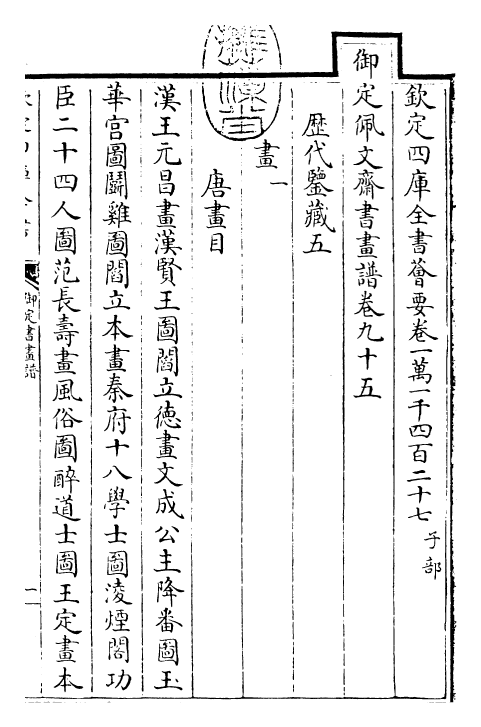 欽定四庫全書薈要卷一萬一千四百二十七 子部
御定佩文齋書畫譜卷九十五
歷代鑒藏五
畫一
唐畫目
漢王元昌畫漢賢王圖閻立德畫文成公主降番圖玉
華宫圖鬭雞圖閻立本畫秦府十八學士圖淩煙閣功
臣二十四人圖范長壽畫風俗圖醉道士圖王定畫本
御定書畫譜
一